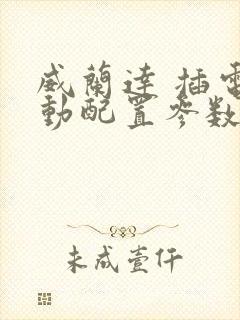 威蘭達 插電
動配置參数
未成壹仟